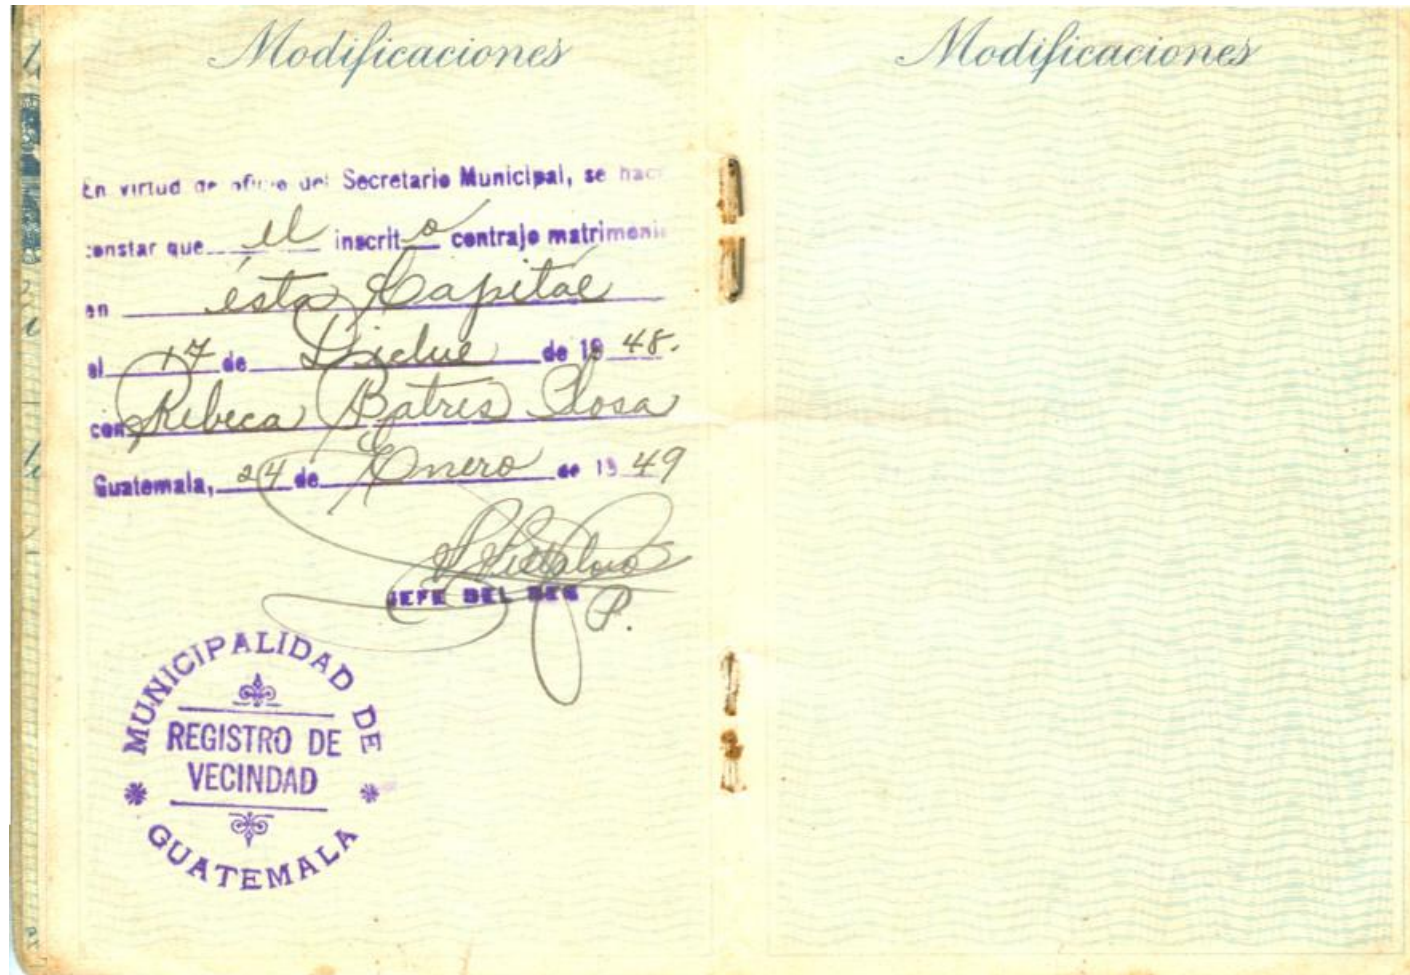 Modificaciones
En virtud de oficio del Secretario Municipal, se hace
constar que el inscrito contrajo matrimonio
en ésta Capital
el 17 de Dicbre de 1948.
con Rebeca Batres Llosa
Guatemala, 24 de Enero de 1949
JEFE DEL REG
P.
MUNICIPALIDAD DE
REGISTRO DE
VECINDAD
GUATEMALA
Modificaciones